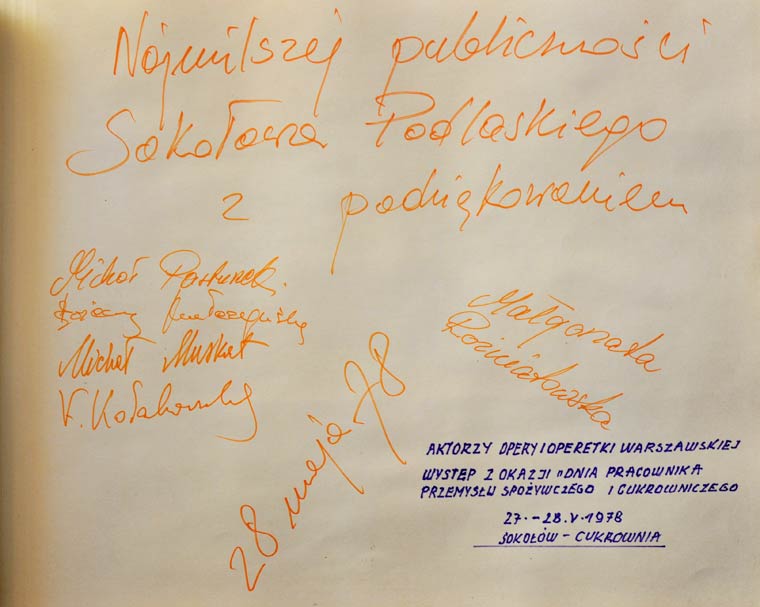 Najmilszej publiczności
Sokołowa Podlaskiego
z podziękowaniem
Michał
Michał Muskat
V. Kołakowski
Małgorzata
28 maja 78
AKTORZY OPERY I OPERETKI WARSZAWSKIEJ
WYSTĘP Z OKAZJI "DNIA PRACOWNIKA
PRZEMYSŁU SPOŻYWCZEGO I CUKROWNICZEGO
27.-28.V.1978
SOKOŁÓW - CUKROWNIA